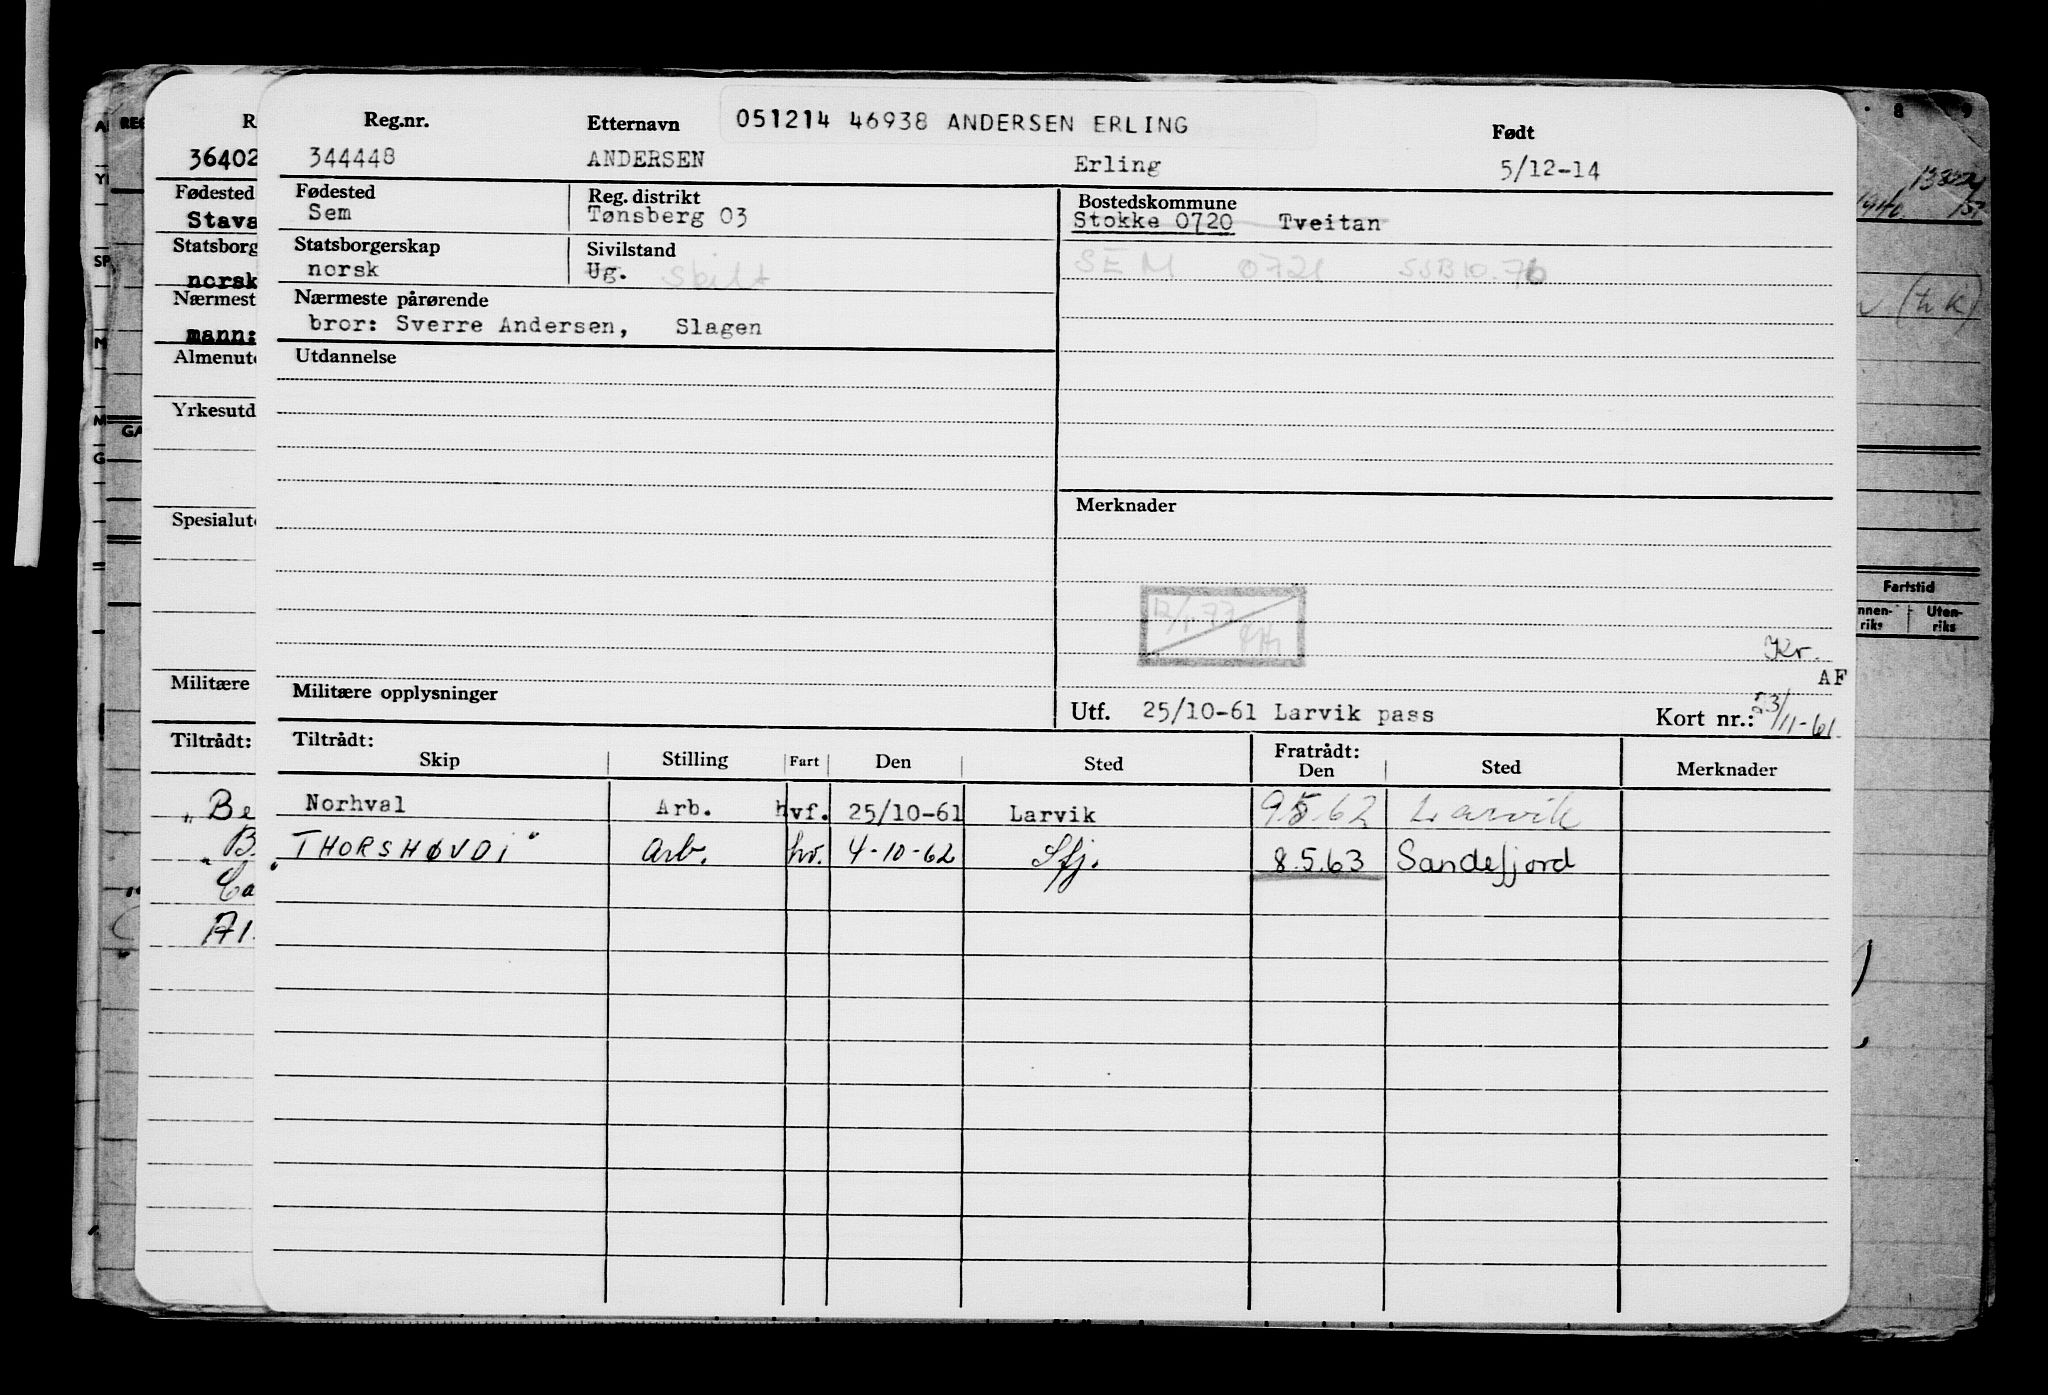 Reg.nr. Etternavn 051214 46938 ANDERSEN ERLING Født
344448 ANDERSEN Erling 5/12-14
Fødested Reg. distrikt Bostedskommune
Sem Tønsberg 03 Stokke 0720 Tveitan
Statsborgerskap Sivilstand SEM 0721 SSB10.76
norsk Ug. Skilt
Nærmeste pårørende
bror: Sverre Andersen, Slagen
Utdannelse
Merknader
Kr.
AF
Militære opplysninger
Utf. 25/10-61 Larvik pass Kort nr.: 23/11-61.
Tiltrådt: Fratrådt:
Skip Stilling Fart Den Sted Den Sted Merknader
Norhval Arb. hvf. 25/10-61 Larvik 9.5.62 Larvik
"THORSHØVDI" Arb. hv. 4-10-62 Sfj. 8.5.63 Sandefjord
R
36402
Fødested
Stava
Statsborg
norsk
Nærmest
mann:
Almenut
Yrkesutd
Spesialut
Militære
Tiltrådt:
"Be
"B
Ca
Al
REG
GA
8 9
(h k)
Fartstid
nnen-riks Uten-riks